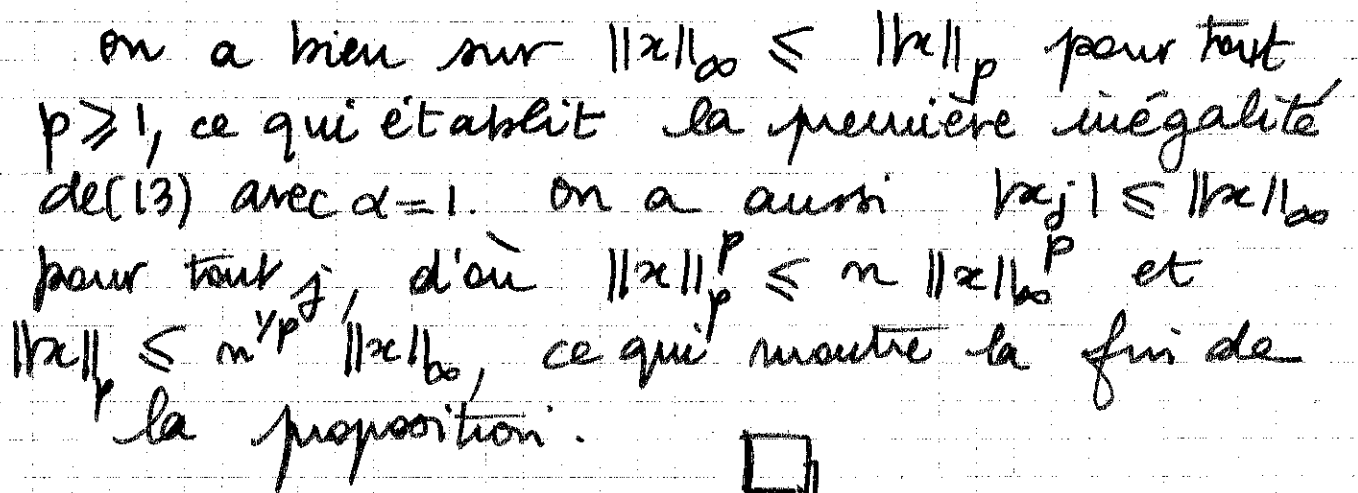 on a bien sur ||x||∞ ≤ ||x||p pour tout
p ≥ 1, ce qui établit la première inégalité
de (13) avec α = 1. on a aussi |xj| ≤ ||x||∞
pour tout j, d'où ||x||p^p ≤ n ||x||∞^p et
||x||p ≤ n^1/p ||x||∞, ce qui montre la fin de
la proposition. □